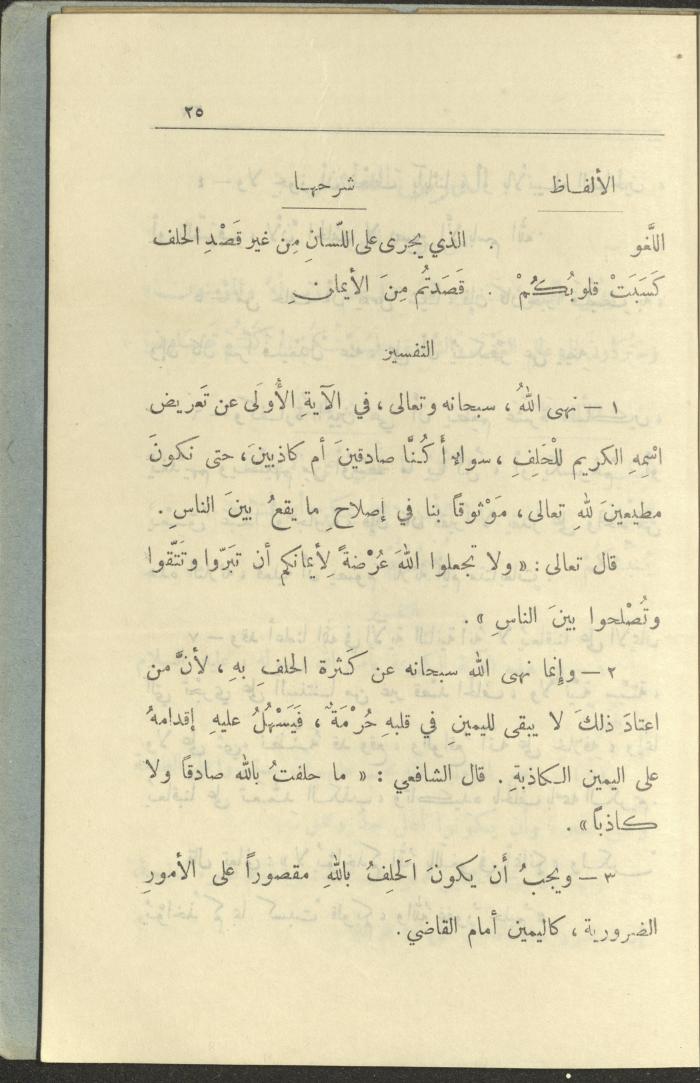 ٢٥
الألفـاظ شرحهـا
اللَّغو الذي يجرى على اللّسانِ مِن غير قَصْدِ الحلف
كَسَبَتْ قلوبُكُمْ . قَصَدَتُم مِنَ الأيمانِ
التفسير
١ — نهى اللهُ ، سبحانه وتعالى ، في الآيةِ الأُولَى عن تَعريض
اسْمِهِ الكريم للْحَلِفِ ، سواء أكُنَّا صادقينَ أم كاذبينَ ، حتى نكونَ
مطيعينَ للهِ تعالى ، مَوْثوقاً بنا في إصلاحِ ما يقعُ بينَ الناسِ .
قال تعالى : « ولا تجعلوا اللهَ عُرْضةً لِأيمانكم أن تبَرّوا وتَتَّقوا
وتُصْلحوا بينَ الناسِ » .
٢ — وإنما نهى الله سبحانه عن كَثرة الحلفِ بهِ ، لأنَّ من
اعتادَ ذلكَ لا يبقى لليمينِ في قلبهِ حُرْمَةٌ ، فَيَسْهُلُ عليهِ إقدامهُ
على اليمين الكاذبةِ . قال الشافعي : « ما حلفتُ بالله صادقاً ولا
كاذباً » .
٣ — ويجبُ أَن يكونَ الَحلِفُ باللهِ مقصوراً على الأمورِ
الضرورية ، كاليمين أمام القاضي .